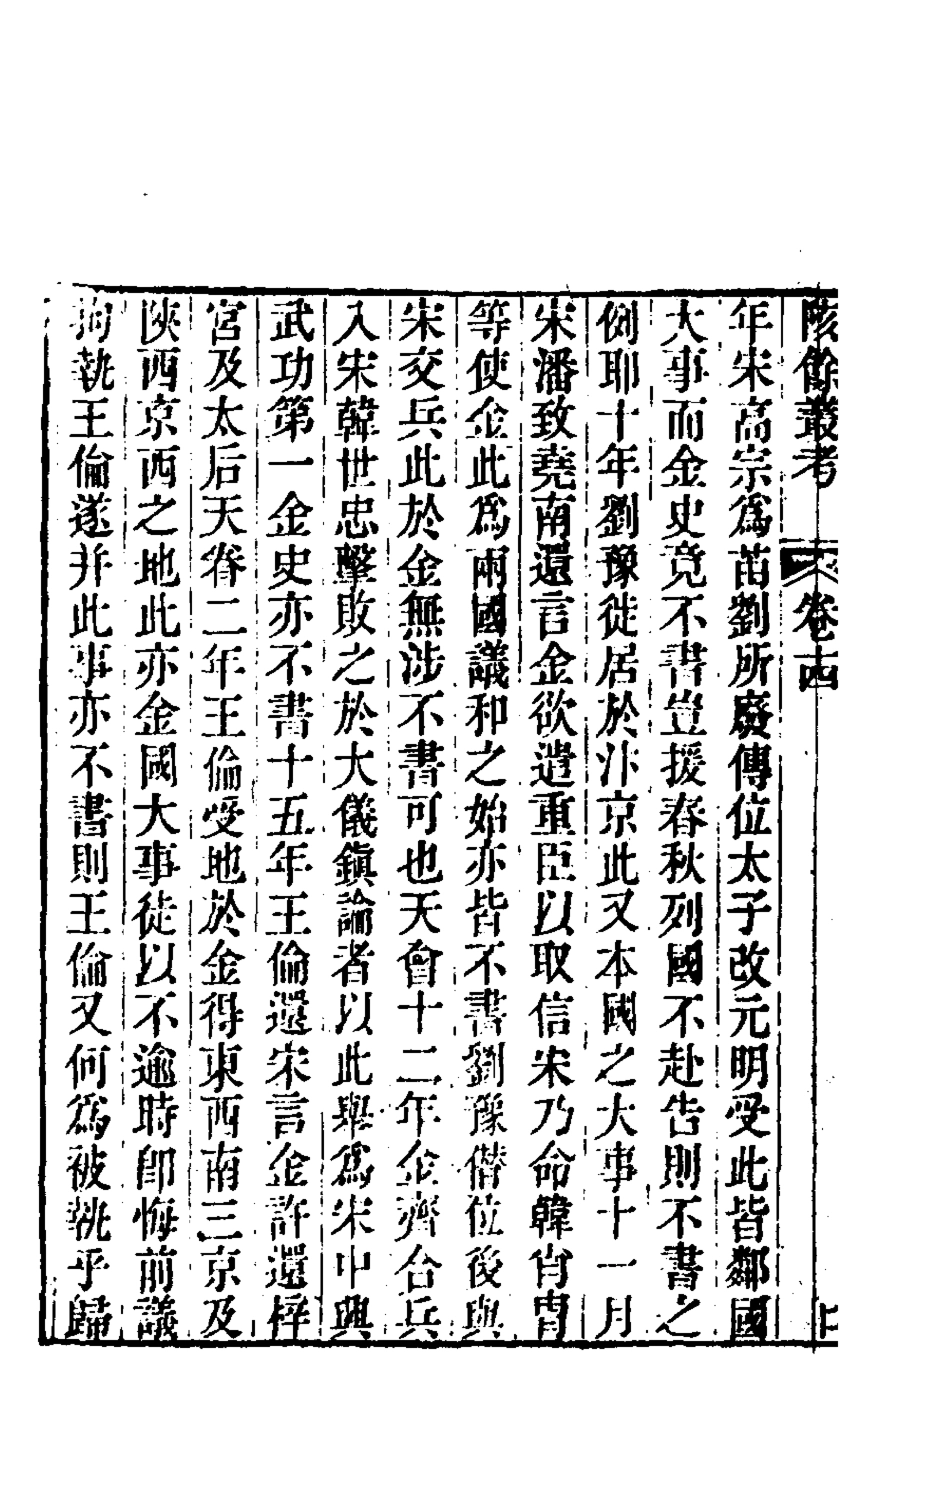 陔餘叢考 卷十四
年宋高宗爲苗劉所廢傳位太子改元明受此皆鄰國
大事而金史竟不書豈援春秋列國不赴告則不書之
例耶十年劉豫徙居於汴京此又本國之大事十一月
宋潘致堯南還言金欲遣重臣以取信宋乃命韓肖胄
等使金此爲兩國議和之始亦皆不書劉豫僭位後與
宋交兵此於金無涉不書可也天會十二年金齊合兵
入宋韓世忠擊敗之於大儀鎮論者以此舉爲宋中興
武功第一金史亦不書十五年王倫還宋言金許還梓
宮及太后天眷二年王倫受地於金得東西南三京及
陝西京西之地此亦金國大事徒以不逾時卽悔前議
拘執王倫遂并此事亦不書則王倫又何爲被執乎歸